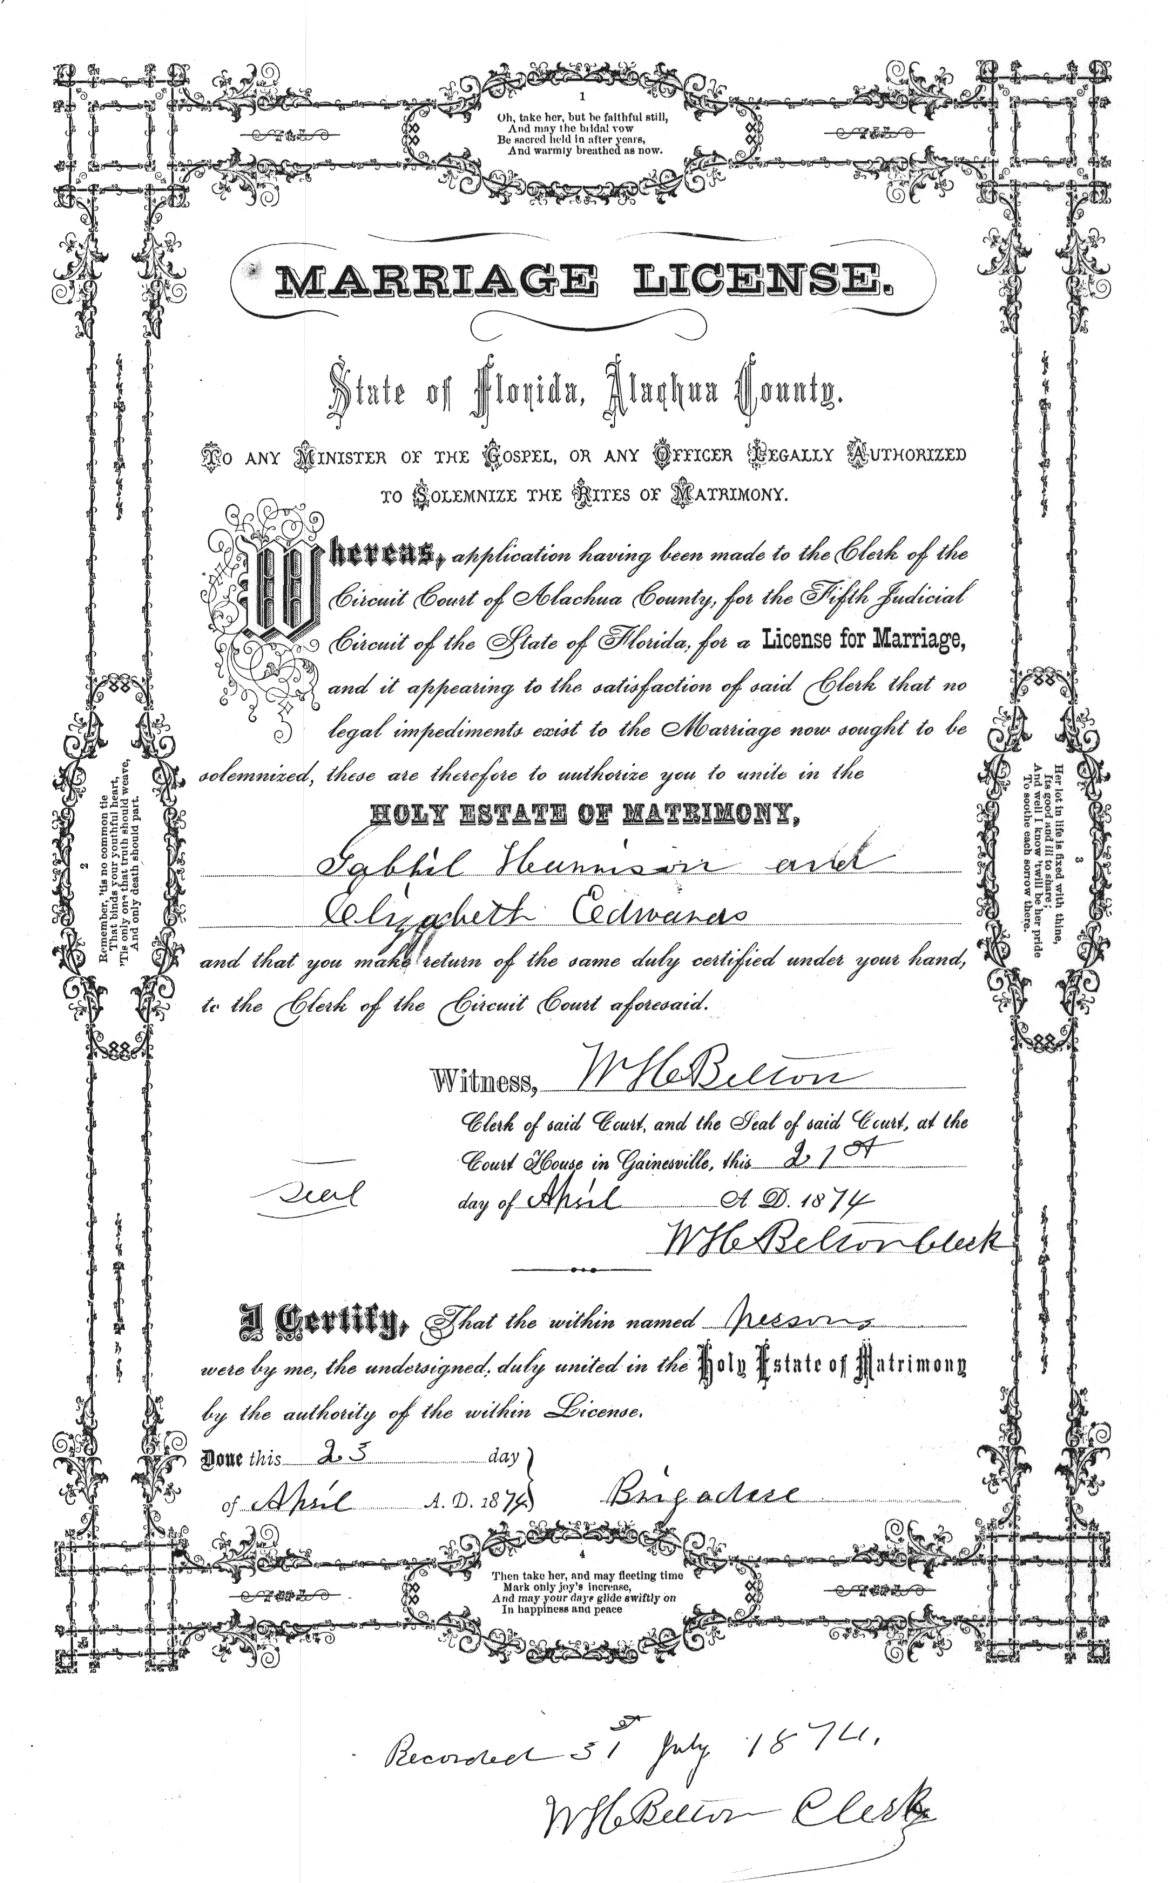 1
Oh, take her, but be faithful still,
And may the bridal vow
Be sacred held in after years,
And warmly breathed as now.
MARRIAGE LICENSE.
State of Florida, Alachua County.
TO ANY MINISTER OF THE GOSPEL, OR ANY OFFICER LEGALLY AUTHORIZED
TO SOLEMNIZE THE RITES OF MATRIMONY.
Whereas, application having been made to the Clerk of the
Circuit Court of Alachua County, for the Fifth Judicial
Circuit of the State of Florida, for a License for Marriage,
and it appearing to the satisfaction of said Clerk that no
legal impediments exist to the Marriage now sought to be
solemnized, these are therefore to authorize you to unite in the
HOLY ESTATE OF MATRIMONY,
and
Elizabeth Edwards
and that you make return of the same duly certified under your hand,
to the Clerk of the Circuit Court aforesaid.
Witness, W H C Belton
Clerk of said Court, and the Seal of said Court, at the
Court House in Gainesville, this 21st
Seal
day of April A. D. 1874
W H C Belton Clerk
I Certify, That the within named persons
were by me, the undersigned, duly united in the Holy Estate of Matrimony
by the authority of the within License.
Done this 23 day
of April A. D. 1874
2
Remember, 'tis no common tie
That binds your youthful heart,
'Tis only one that truth should weave,
And only death should part.
3
Her lot in life is fixed with thine,
Its good and ill to share;
And well I know 'twill be her pride
To soothe each sorrow there.
4
Then take her, and may fleeting time
Mark only joy's increase,
And may your days glide swiftly on
In happiness and peace
Recorded 31st July 1874.
W H C Belton Clerk